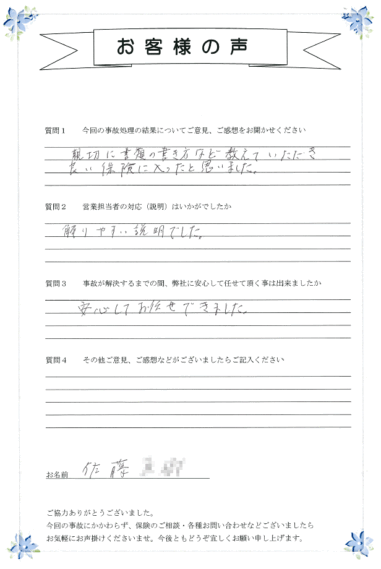 お客様の声
質問1 今回の事故処理の結果についてご意見、ご感想をお聞かせください
親切に書類の書き方など教えていただき
良い保険に入ったと思いました。
質問2 営業担当者の対応（説明）はいかがでしたか
解りやすい説明でした。
質問3 事故が解決するまでの間、弊社に安心して任せて頂く事は出来ましたか
安心してお任せできました。
質問4 その他ご意見、ご感想などがございましたらご記入ください
お名前 佐藤
ご協力ありがとうございました。
今回の事故にかかわらず、保険のご相談・各種お問い合わせなどございましたら
お気軽にお声掛けくださいませ。今後ともどうぞ宜しくお願い申し上げます。